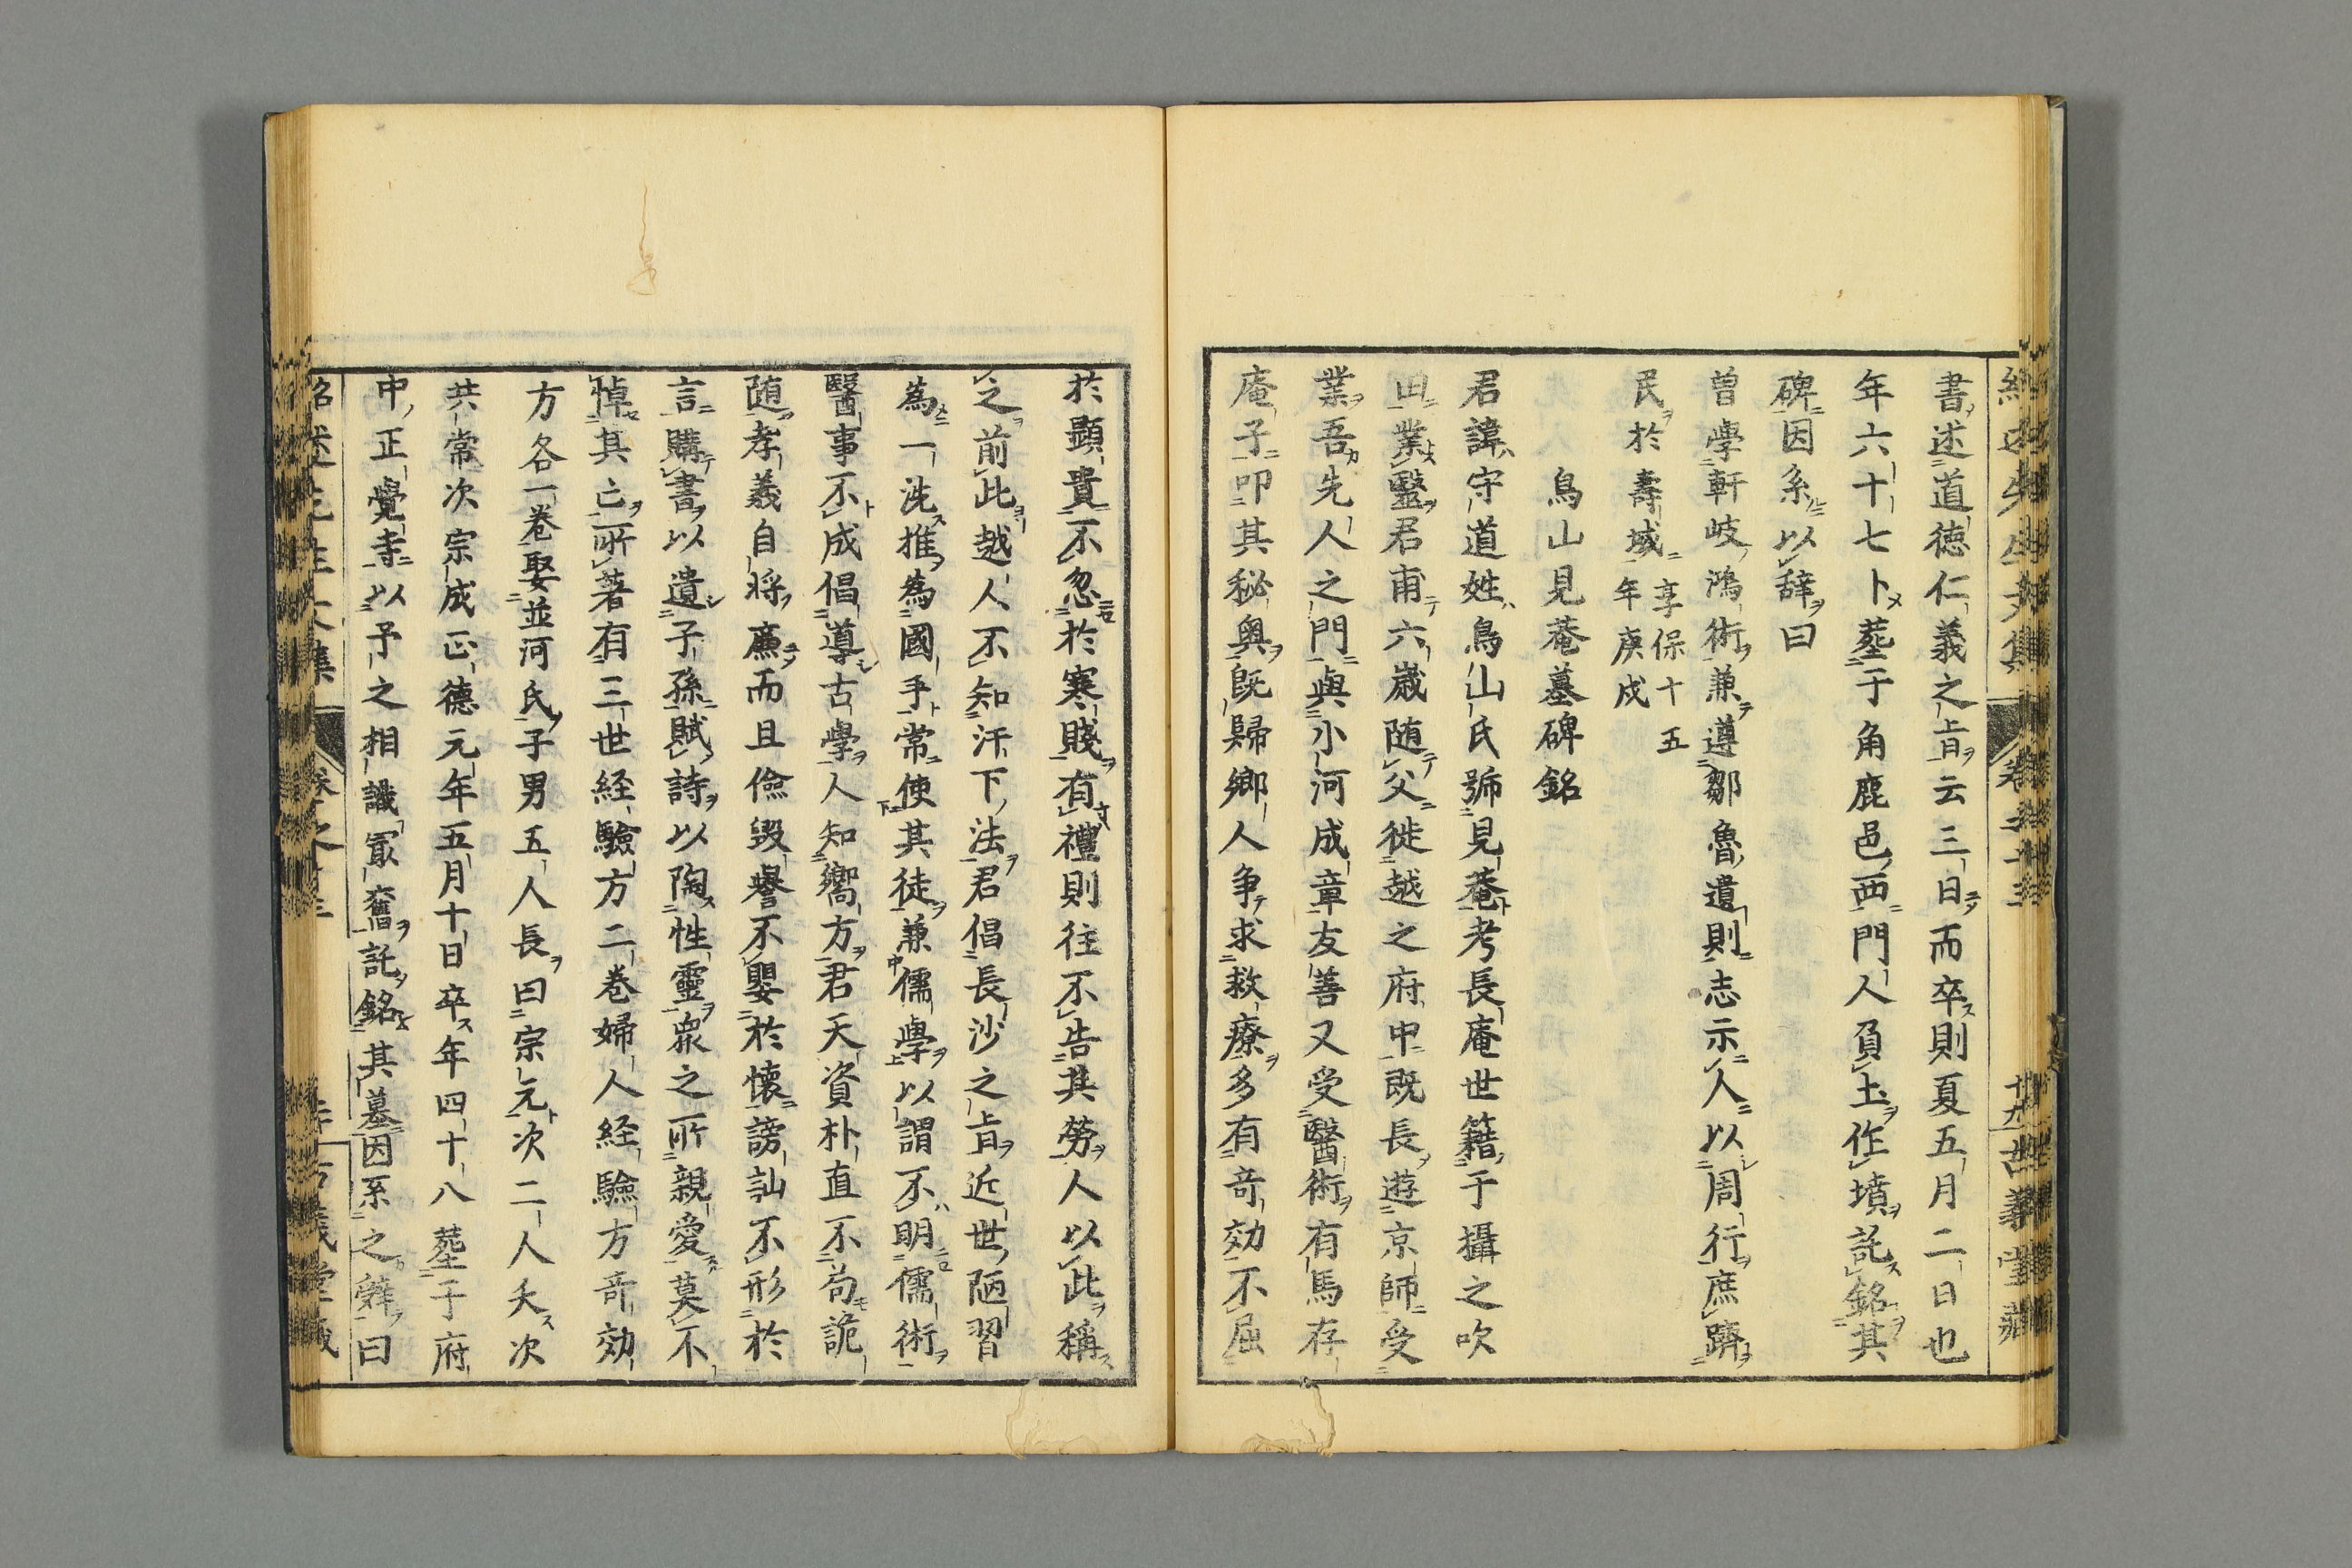 書述道徳仁義之㫖云三日而卒則夏五月二日也
年六十七卜葬于角鹿邑西門人負土作墳託銘其
碑因系以辞曰
曽學軒岐鴻術兼遵鄒魯遺則志示人以周行庶躋
民於壽域享保十五
年庚戌
鳥山見菴墓碑銘
君諱守道姓鳥山氏號見菴考長庵世籍于攝之吹
田業醫君甫六嵗随父徙越之府中既長遊京師受
業吾先人之門與小河成章友善又受醫術有馬存
庵子叩其秘奥既歸郷人争求救療多有竒効不屈
於顯貴不忽於寒賤有禮則往不告其勞人以此稱
之前此越人不知汗下法君倡長沙之㫖近世陋習
為一洗推為國手常使其徒兼儒學以謂不明儒術
醫事不成倡導古學人知嚮方君天資朴直不苟詭
随孝義自將廉而且儉毀譽不嬰於懐謗訕不形於
言購書以遺子孫賦詩以陶性靈衆之所親愛莫不
悼其亡所著有三世経驗方二巻婦人経驗方竒効
方各一巻娶並河氏子男五人長曰宗元次二人夭次
共常次宗成正徳元年五月十日卒年四十八葬于府
中正覺寺以予之相識㝡舊託銘其墓因系之辤曰